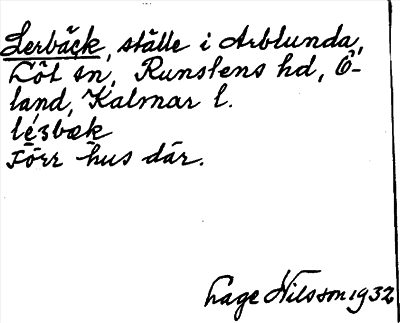 Lerbäck, ställe i Arblunda,
Löt sn, Runstens hd, Ö-
land, Kalmar l.
lézbæk
Förr hus där.
Lage Nilsson 1932